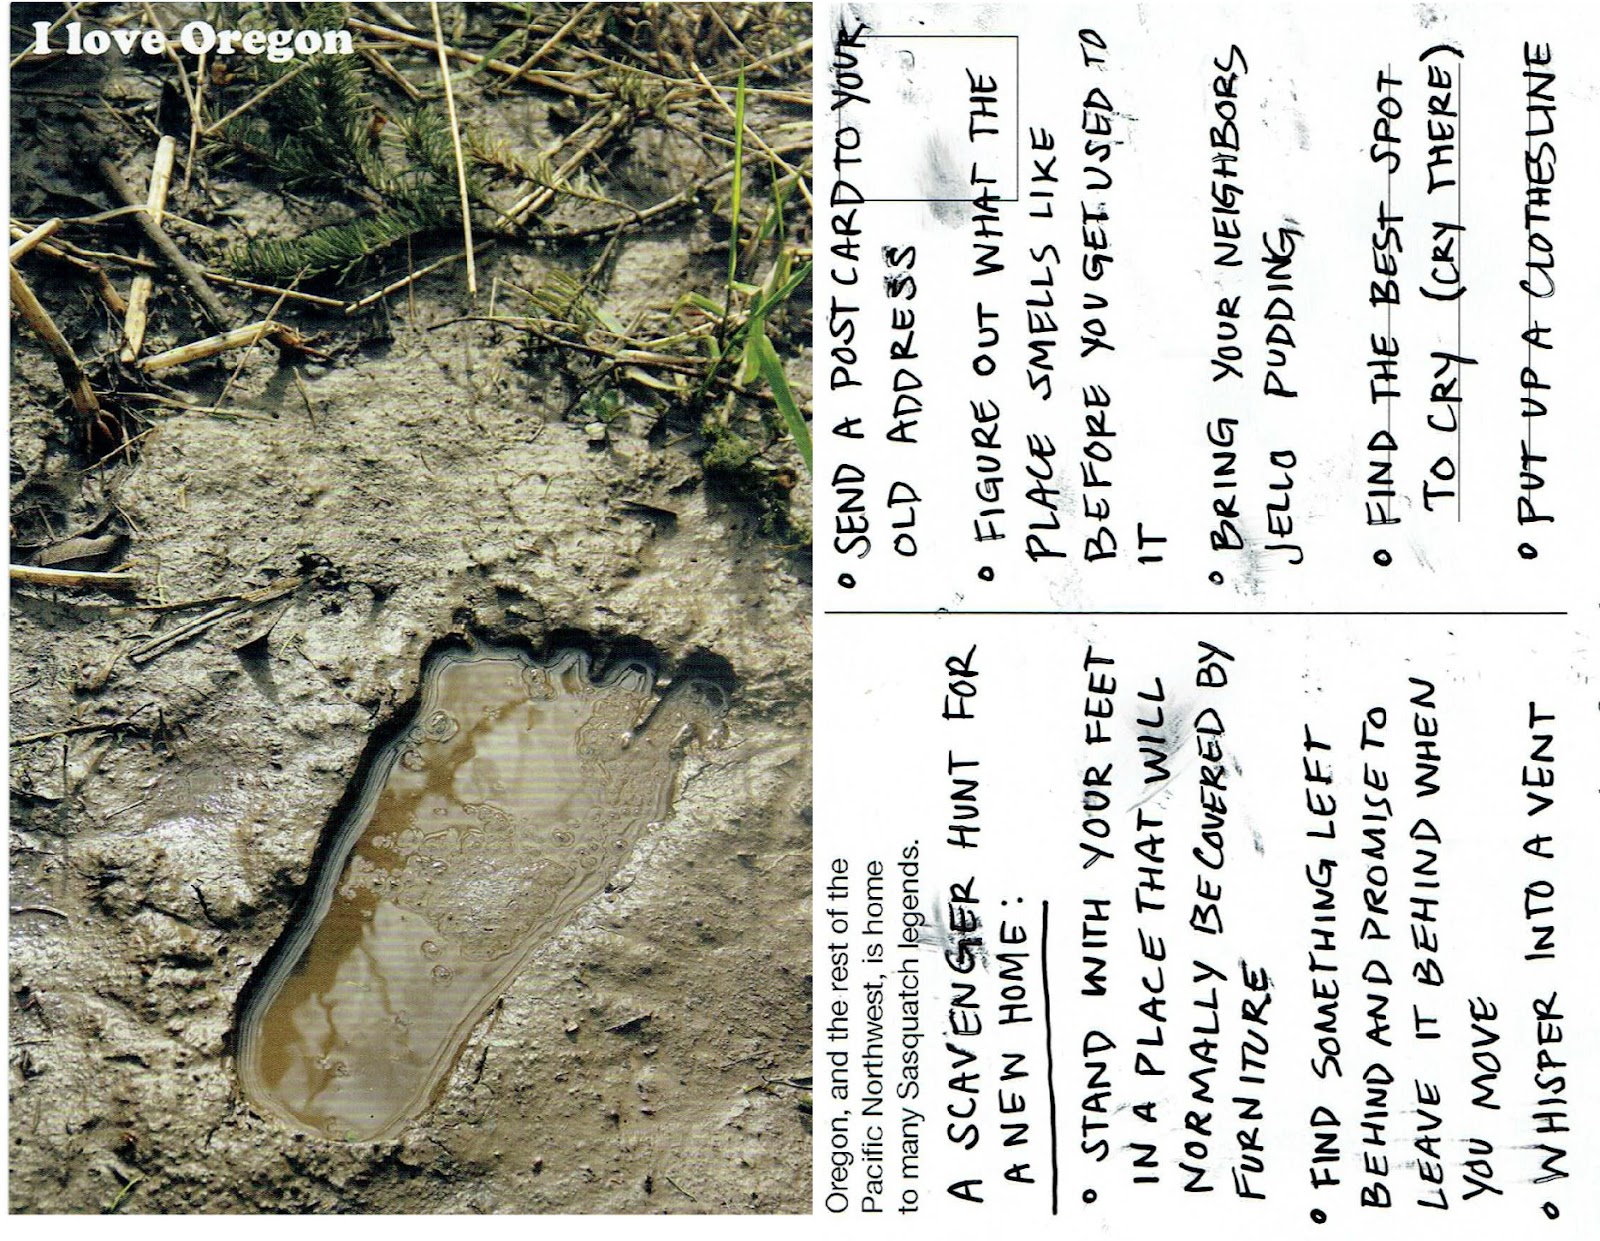 I love Oregon
Oregon, and the rest of the
Pacific Northwest, is home
to many Sasquatch legends.
A SCAVENGER HUNT FOR
A NEW HOME:
• STAND WITH YOUR FEET
IN A PLACE THAT WILL
NORMALLY BE COVERED BY
FURNITURE
• FIND SOMETHING LEFT
BEHIND AND PROMISE TO
LEAVE IT BEHIND WHEN
YOU MOVE
• WHISPER INTO A VENT
• SEND A POSTCARD TO YOUR
OLD ADDRESS
• FIGURE OUT WHAT THE
PLACE SMELLS LIKE
BEFORE YOU GET USED TO
IT
• BRING YOUR NEIGHBORS
JELLO PUDDING
• FIND THE BEST SPOT
TO CRY (CRY THERE)
• PUT UP A CLOTHESLINE